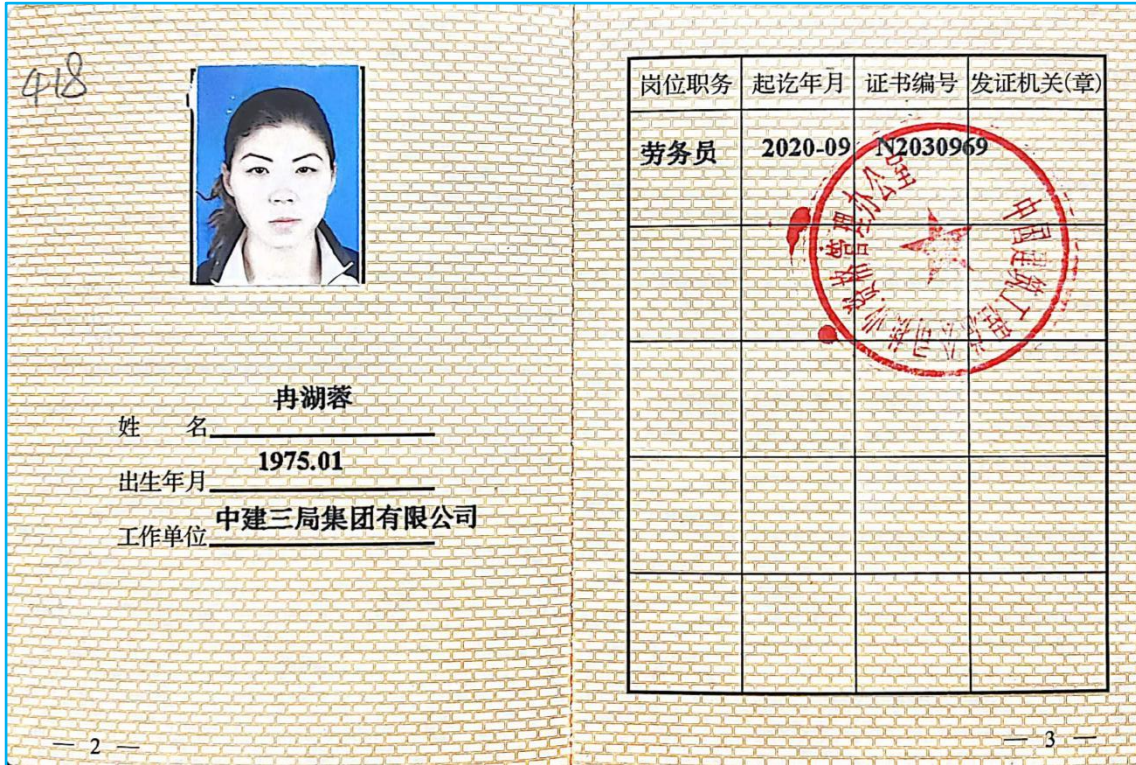 418
姓 名 冉湖蓉
出生年月 1975.01
工作单位 中建三局集团有限公司
— 2 —
岗位职务 起讫年月 证书编号 发证机关(章)
劳务员 2020-09 N2030969
中国建筑工程总公司执业资格管理办公室
— 3 —